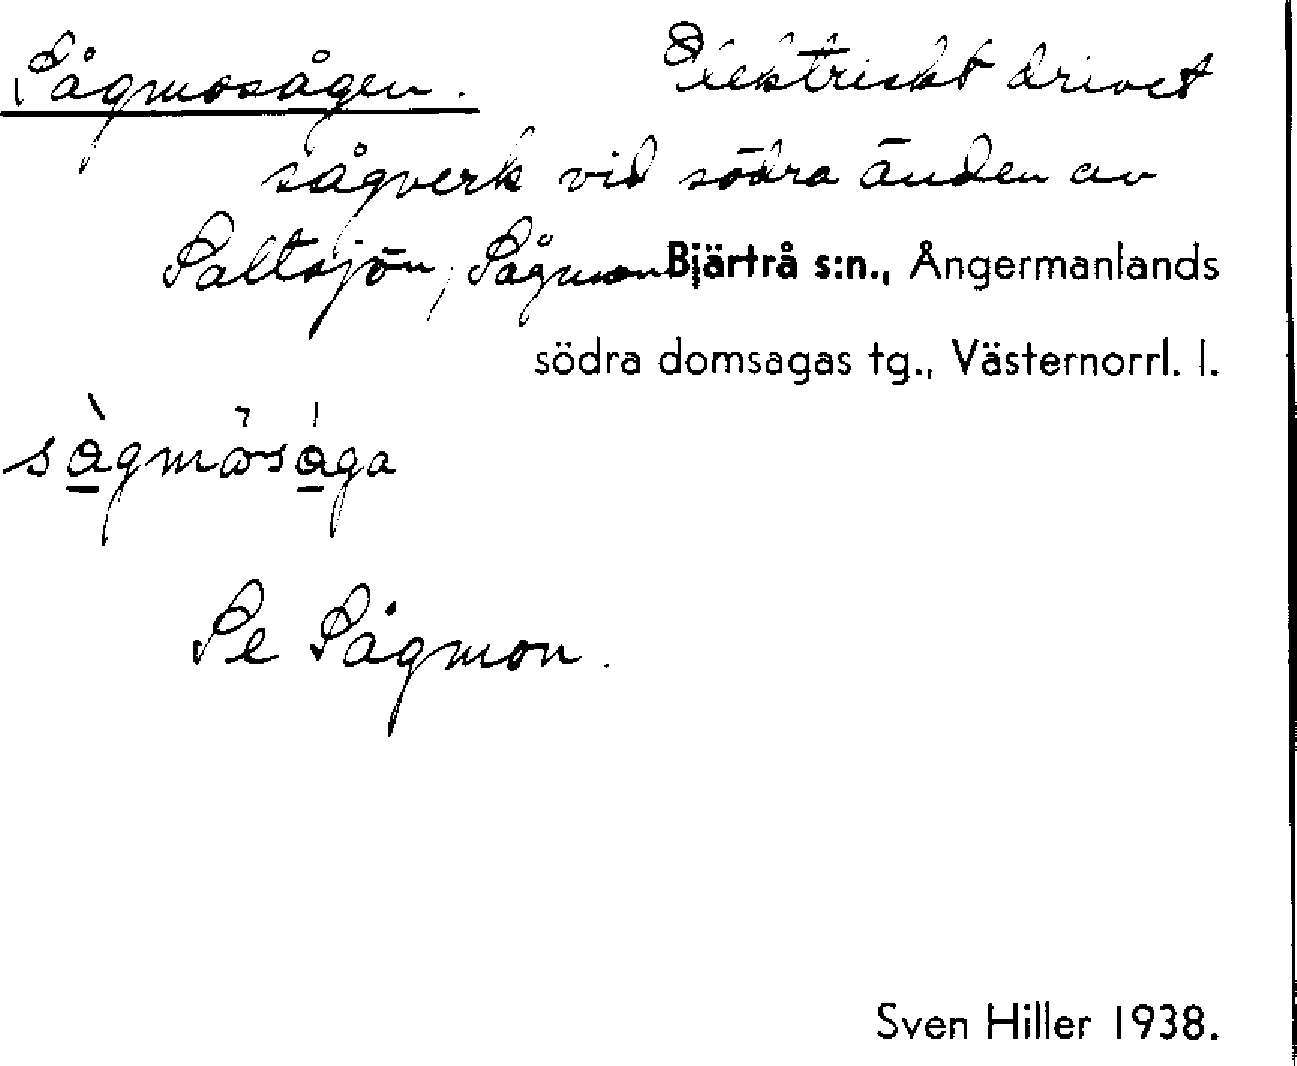 Sågmosågen. Elektriskt drivet
sågverk vid södra änden av
Saltsjön, Sågmon Bjärtrå s:n., Ångermanlands
södra domsagas tg., Västernorrl. l.
sàgmɷsága
Se Sågmon.
Sven Hiller 1938.